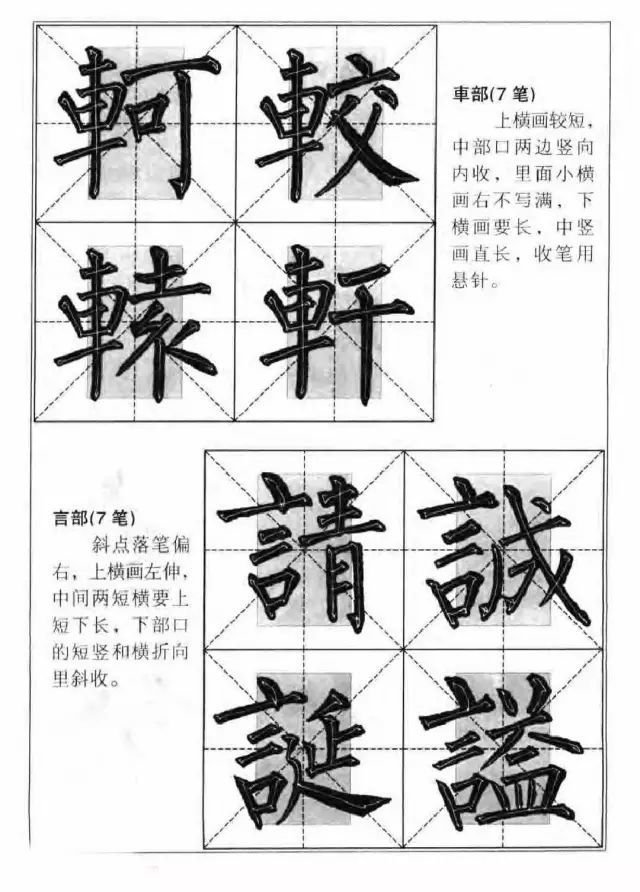 軻 較
車部(7 笔)
上横画较短，
中部口两边竖向
内收，里面小横
画右不写满，下
横画要长，中竖
画直长，收笔用
悬针。
轅 軒
言部(7 笔)
斜点落笔偏
右，上横画左伸，
中间两短横要上
短下长，下部口
的短竖和横折向
里斜收。
請 誠
誕 謚